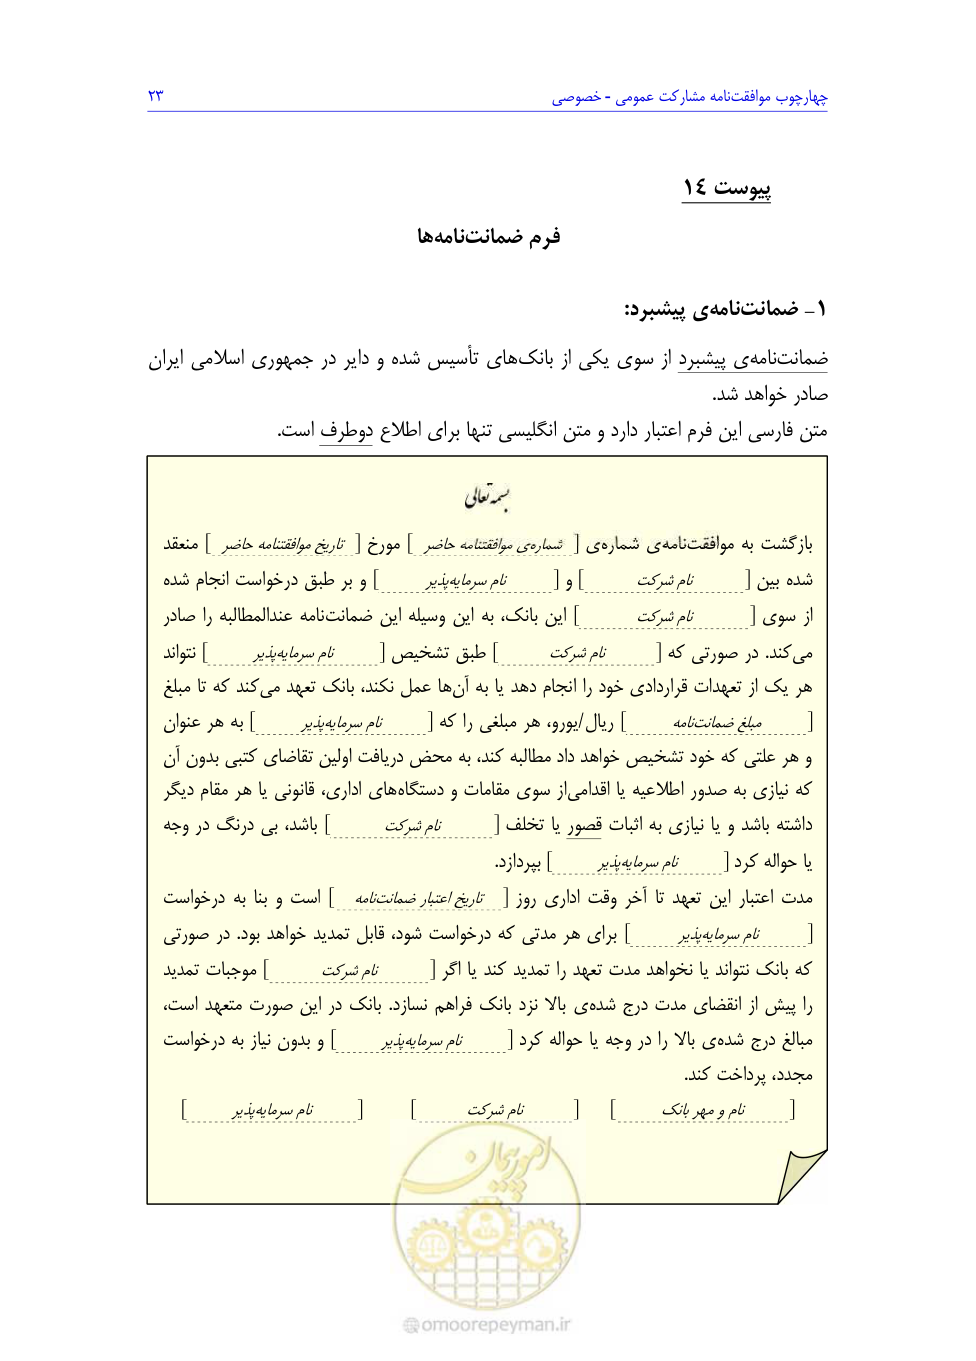 چهارچوب موافقت‌نامه مشارکت عمومی - خصوصی ۲۳
پیوست ١٤
فرم ضمانت‌نامه‌ها
۱- ضمانت‌نامه‌ی پیشبرد:
ضمانت‌نامه‌ی پیشبرد از سوی یکی از بانک‌های تأسیس شده و دایر در جمهوری اسلامی ایران
صادر خواهد شد.
متن فارسی این فرم اعتبار دارد و متن انگلیسی تنها برای اطلاع دوطرف است.
بسمه تعالی
بازگشت به موافقت‌نامه‌ی شماره‌ی [ شماره‌ی موافقتنامه حاضر ] مورخ [ تاریخ موافقتنامه حاضر ] منعقد
شده بین [ نام شرکت ] و [ نام سرمایه‌پذیر ] و بر طبق درخواست انجام شده
از سوی [ نام شرکت ] این بانک، به این وسیله این ضمانت‌نامه عندالمطالبه را صادر
می‌کند. در صورتی که [ نام شرکت ] طبق تشخیص [ نام سرمایه‌پذیر ] نتواند
هر یک از تعهدات قراردادی خود را انجام دهد یا به آن‌ها عمل نکند، بانک تعهد می‌کند که تا مبلغ
[ مبلغ ضمانت‌نامه ] ریال/یورو، هر مبلغی را که [ نام سرمایه‌پذیر ] به هر عنوان
و هر علتی که خود تشخیص خواهد داد مطالبه کند، به محض دریافت اولین تقاضای کتبی بدون آن
که نیازی به صدور اطلاعیه یا اقدامی‌از سوی مقامات و دستگاه‌های اداری، قانونی یا هر مقام دیگر
داشته باشد و یا نیازی به اثبات قصور یا تخلف [ نام شرکت ] باشد، بی درنگ در وجه
یا حواله کرد [ نام سرمایه‌پذیر ] بپردازد.
مدت اعتبار این تعهد تا آخر وقت اداری روز [ تاریخ اعتبار ضمانت‌نامه ] است و بنا به درخواست
[ نام سرمایه‌پذیر ] برای هر مدتی که درخواست شود، قابل تمدید خواهد بود. در صورتی
که بانک نتواند یا نخواهد مدت تعهد را تمدید کند یا اگر [ نام شرکت ] موجبات تمدید
را پیش از انقضای مدت درج شده‌ی بالا نزد بانک فراهم نسازد. بانک در این صورت متعهد است،
مبالغ درج شده‌ی بالا را در وجه یا حواله کرد [ نام سرمایه‌پذیر ] و بدون نیاز به درخواست
مجدد، پرداخت کند.
[ نام و مهر بانک ] [ نام شرکت ] [ نام سرمایه‌پذیر ]
امور پیمان
@omoorepeyman.ir